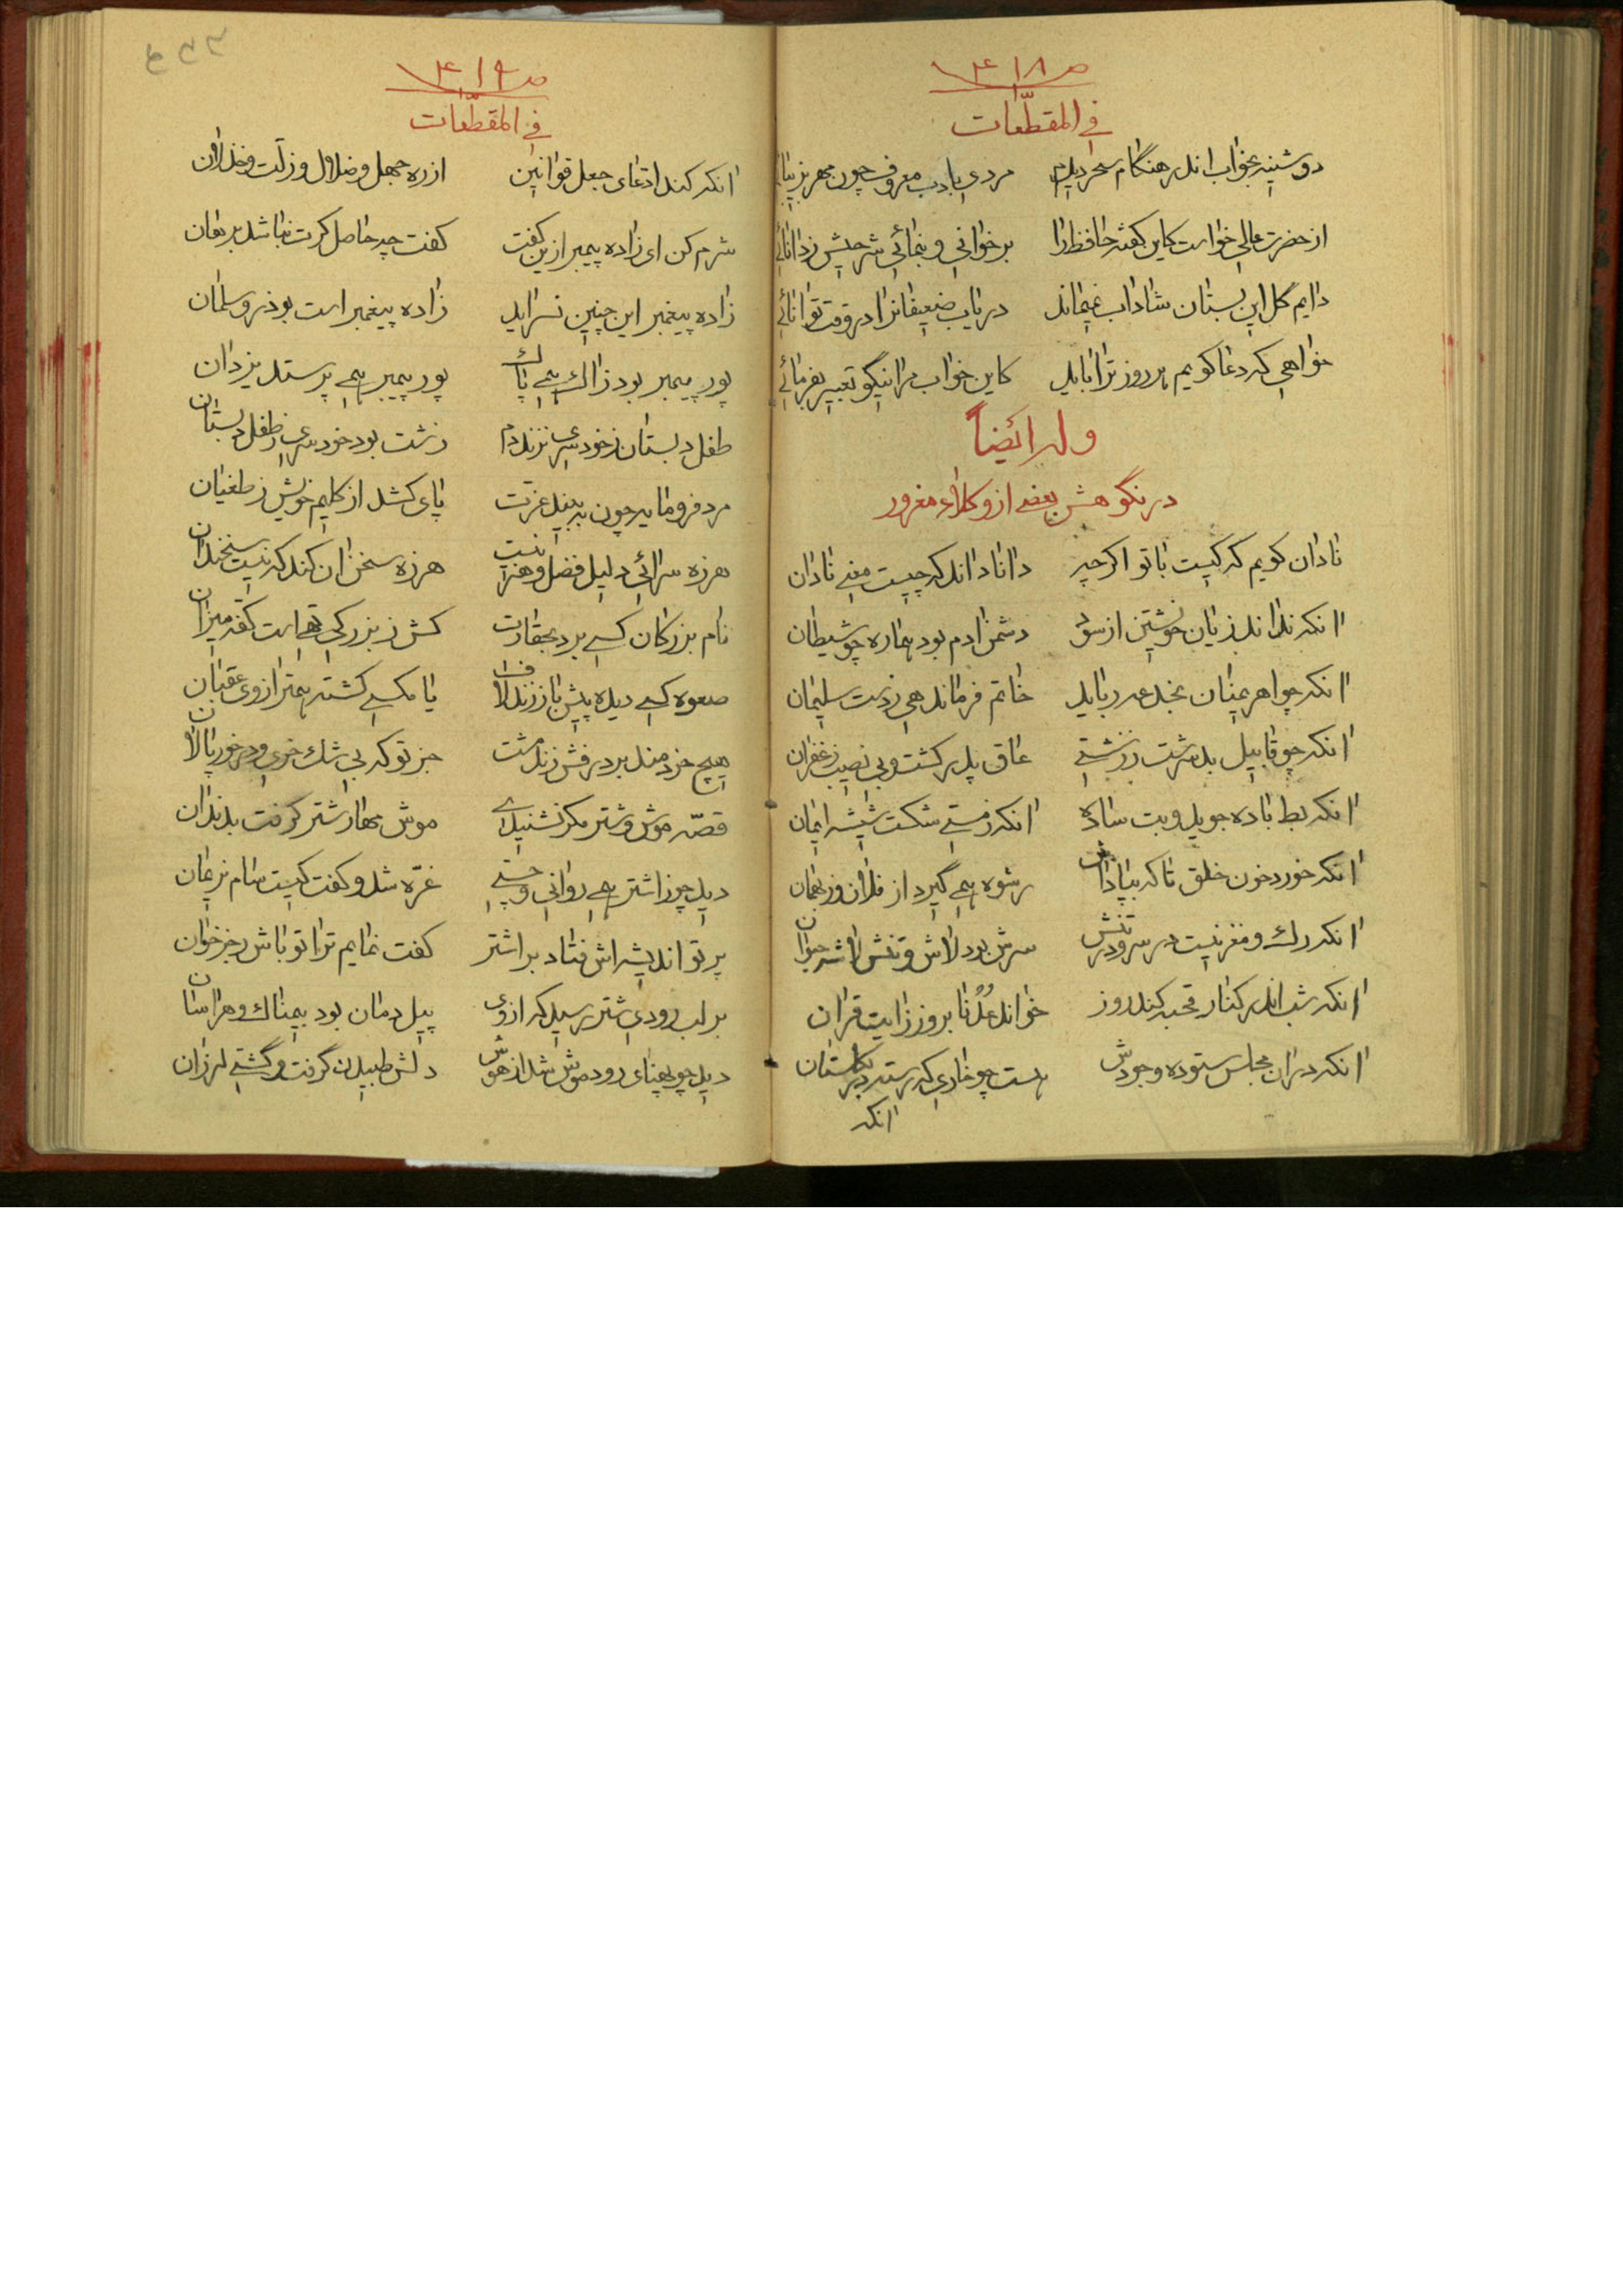 ص ۴۱۸
فی المقطّعات
دوشینه بخواب اندر هنگام سحر دیدم مردی بادب معروف چون مهر بزیبائی
از حضرت عالی خواست کاین گفته حافظ را برخوانی و بنمائی شرحیش ز دانائی
دایم گل این بستان شاداب نمیماند دریاب ضعیفانرا در وقت توانائی
خواهی که دعا گویم هر روز ترا باید کاین خواب مرا نیکو تعبیر بفرمائی
وله ایضاً
در نکوهش بعضی از وکلاء مغرور
نادان گویم که کیست با تو اگر چه دانا داند که چیست معنی نادان
آنکه نداند زیان خویشتن از سود دشمن آدم بود هماره چو شیطان
آنکه چو اهریمنان بخدعه رباید خاتم فرماندهی ز دست سلیمان
آنکه چو قابیل بد سرشت ز زشتی عاق پدر گشت و بی نصیب ز غفران
آنکه بط باده جوید و بت ساده آنکه ز مستی شکست شیشه ایمان
آنکه خورد خون خلق تا که بپاداش رشوه همی گیرد از فلان وز بهمان
آنکه رگ و مغز نیست در سر و در تنش سرش بود لاش و تنش لاشه حیوان
آنکه شب اندر کنار قحبه کند روز خواند عدنا بروز ز آیت قرآن
آنکه در آن مجلس ستوده وجودش هست چو خاری که رسته در گلستان
آنکه
ص ۴۱۹
فی المقطّعات
آنکه کند ادعای جعل قوانین از ره جهل و ضلال و زلت و خذلان
شرم کن ای زاده پیمبر ازین گفت گفت چه حاصل گرت نباشد برهان
زاده پیغمبر این چنین نسراید زاده پیغمبر است بوذر و سلمان
پور پیمبر بود ز آک همی پاک پور پیمبر همی پرستد یزدان
طفل دبستان ز خودسری نزند دم زشت بود خودسری ز طفل دبستان
مرد فرومایه چون ببیند عزت پای کشد از گلیم خویش ز طغیان
هرزه سرائی دلیل فضل و هنر نیست هرزه سخن آن کند که نیست سخندان
نام بزرگان کسی برد بحقارت کش ز بزرگی تهی است کفه میزان
صعوه کسی دیده پیش باز زند لاف یا مگسی گشته بهتر از وی عقبان
هیچ خردمند بر درفش زند مشت جز تو که بی شک خری و در خور پالان
قصّه موش و شتر مگر نشنیدی موش مهار شتر گرفت بدندان
دید چو ز اشتر همی روانی و چستی غرّه شد و گفت کیست سام نریمان
پرتو اندیشه اش فتاد بر اشتر گفت نمایم ترا تو باش رجز خوان
بر لب رودی شتر رسید که از وی پیل دمان بود بیمناک و هراسان
دید چو پهنای رود موش شد از هوش دلش طپیدن گرفت و گشتی لرزان